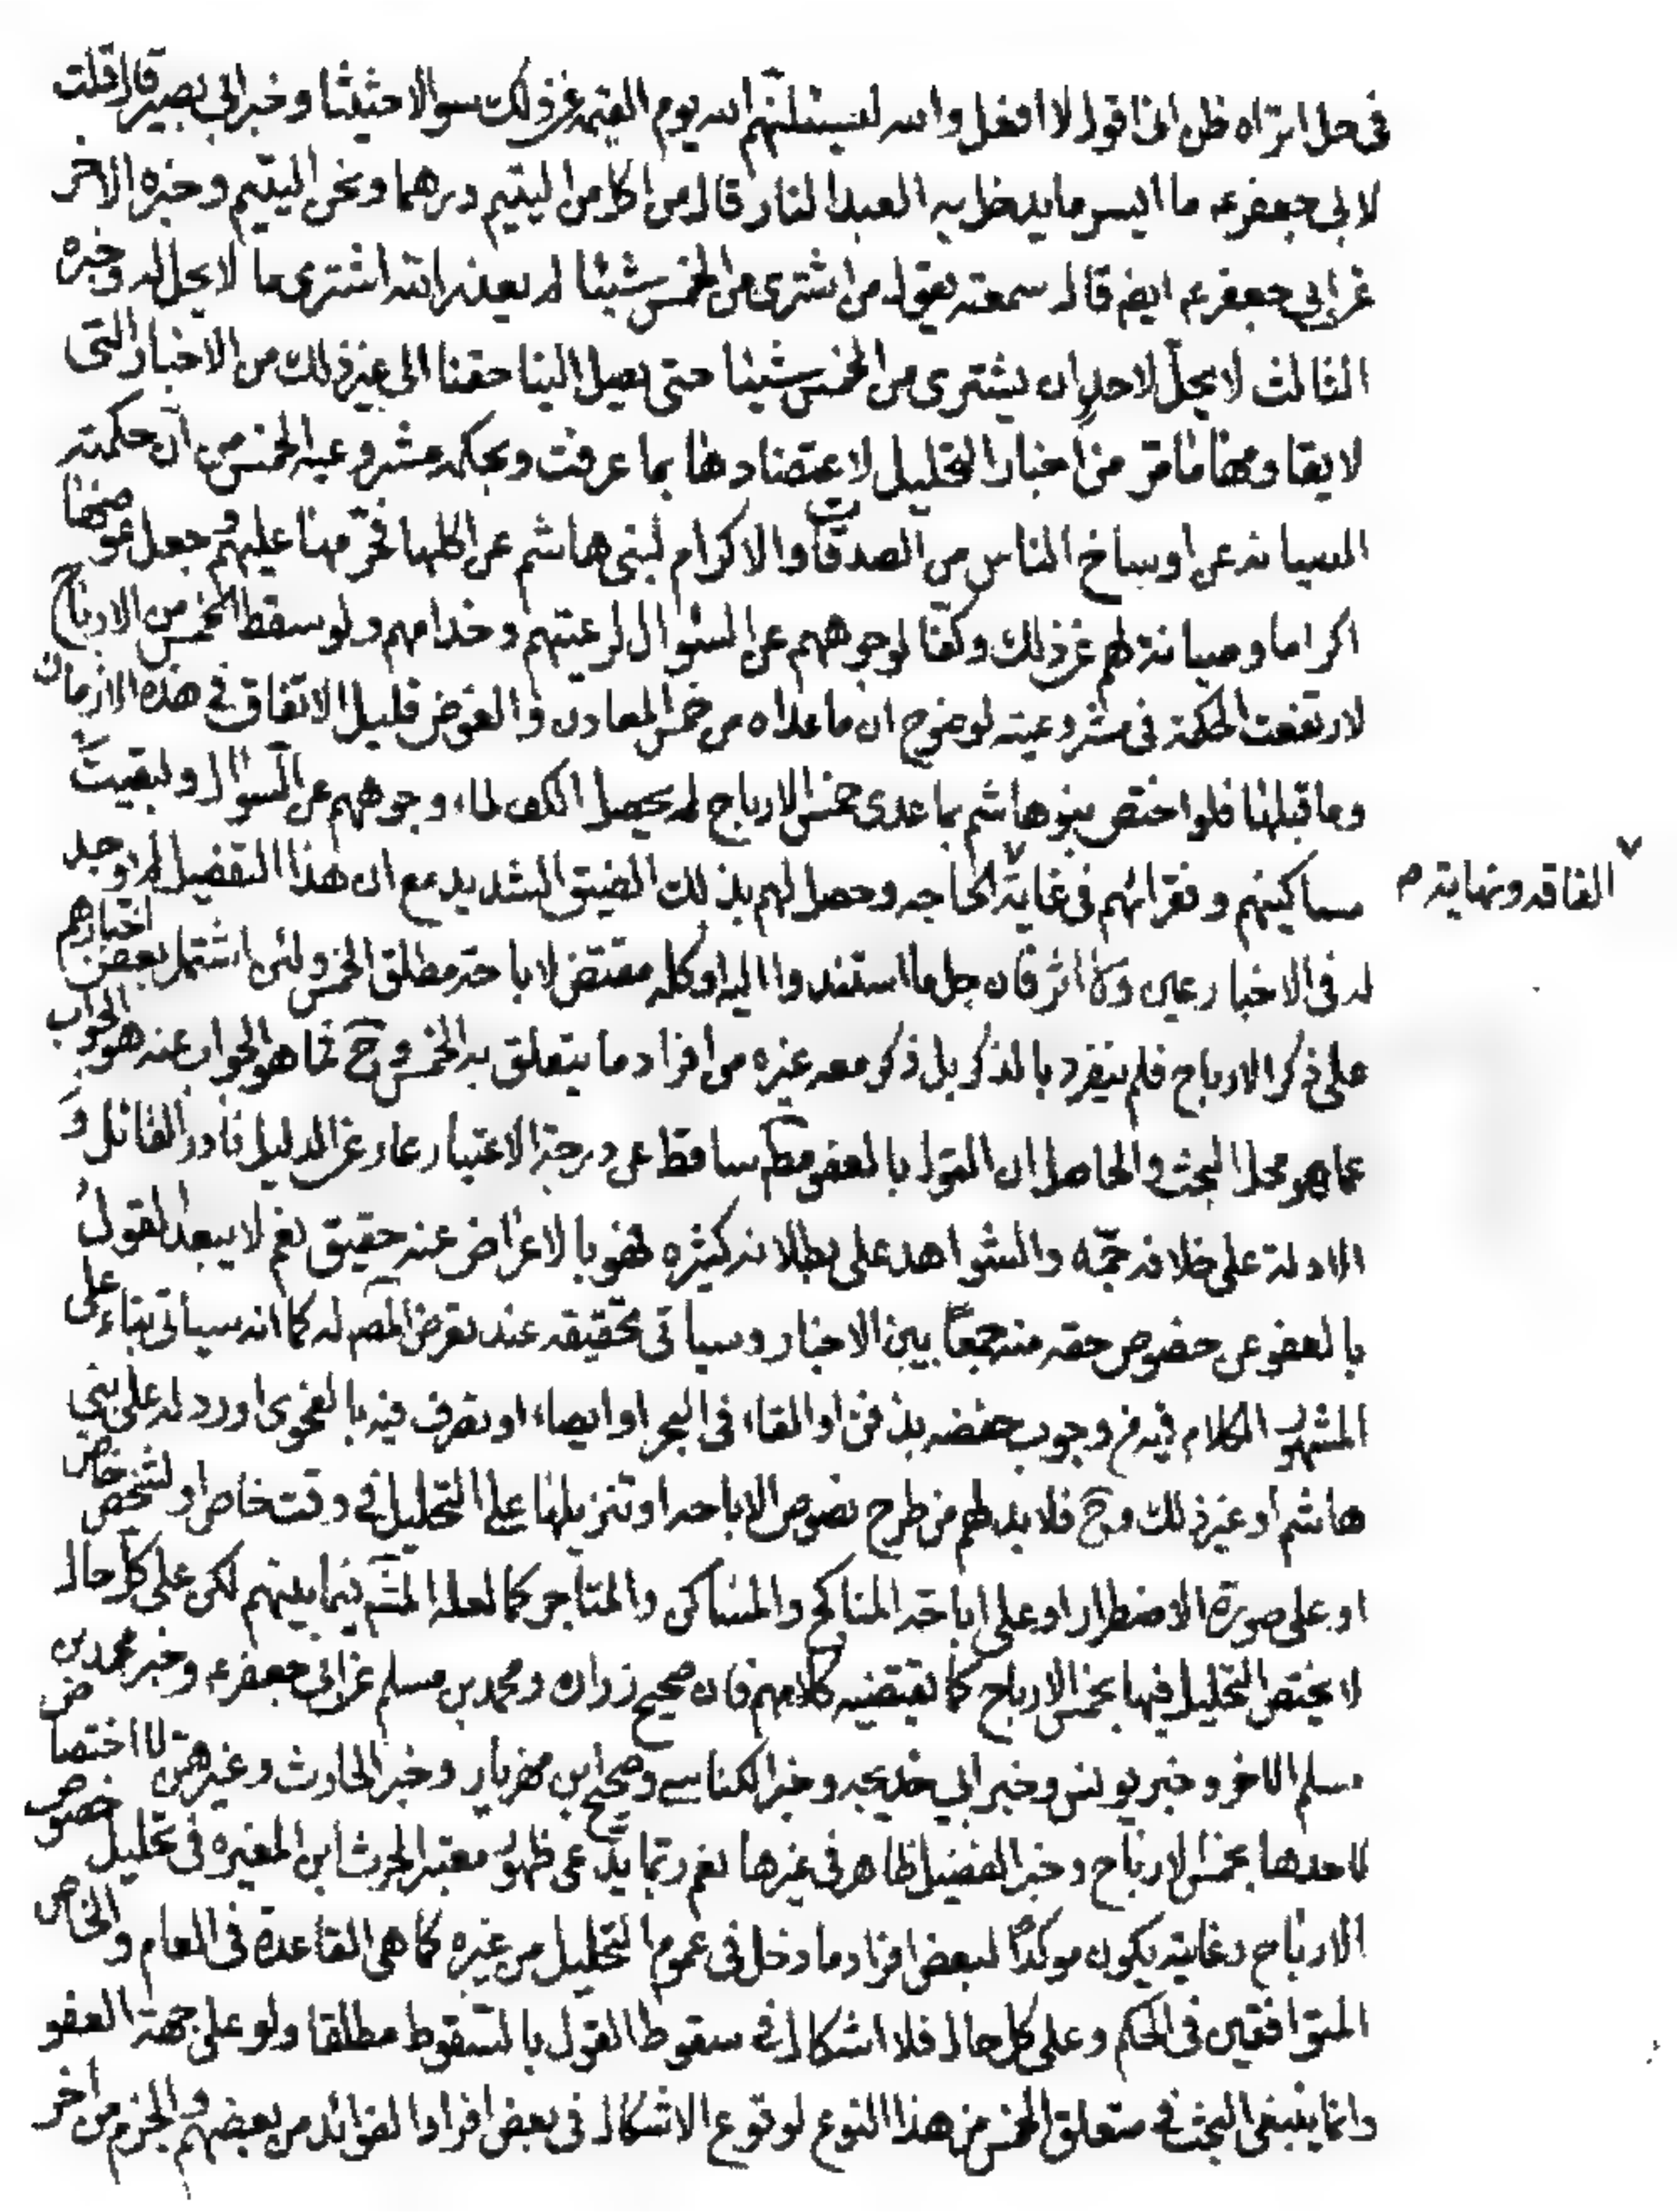 في حل اتراه ظن اني اقول لا افعل والله ليسئلنهم الله يوم القيمة عن ذلك سوالا حثيثا وخبر ابي بصير قال قلت
لابي جعفر ع ما ايسر ما يدخل به العبد النار قال من اكل من اليتيم درهما ونحن اليتيم وخبره الاخر
عن ابي جعفر ع ايضا قال سمعته يقول من اشترى من الخمس شيئا لم يعذره الله اشترى ما لا يحل له وخبره
الثالث لا يحلّ لاحدٍ ان يشترى من الخمس شيئا حتى يصل الينا حقنا الى غير ذلك من الاخبار التى
لا يقاومها ما مرّ من اخبار التحليل لاعتضادها بما عرفت وبحكمة مشروعية الخمس من انّ حكمته
الصيانة عن اوساخ الناس من الصدقات والاكرام لبنى هاشم عن اكلها فحرّمها عليهم وجعل عوضها
اكراما وصيانة لهم عن ذلك وكفّا لوجوههم عن السؤال لرعيتهم وخدامهم ولو سقط الخمس من الارباح
لارتفعت الحكمة فى مشروعيته لوضوح ان ما عداه من خمس المعادن والغوص قليل الاتفاق في هذه الازمان
وما قبلها فلو اختص بنو هاشم بما عدى خمس الارباح لم يحصل الكف لماء وجوههم عن السؤال ولبقيت
مساكينهم وفقرائهم فى غاية الحاجه وحصل لهم بذلك الضيق الشديد مع ان هذا التفصيل لم اوجد
الفاقه ونهايته م
له فى الاخبار عين ولا اثر فان جل ما استندوا اليه او كله مقتض لاباحة مطلق الخمس ولئن اشتمل بعض اخبارهم
على ذكر الارباح فلم ينفرد بالذكر بل ذكر معه غيره من افراد ما يتعلق به الخمس وح فما هو الجواب عنه هو الجواب
عما هو محل البحث والحاصل ان القول بالعفو مط ساقط عن درجة الاعتبار عار عن الدليل نادر القائل و
الادلة على خلافه جمّه والشواهد على بطلانه كثيره فهو بالاعراض عنه حقيق نعم لا يبعد القول
بالعفو عن خصوص حقه منه جمعًا بين الاخبار وسيأتى تحقيقه عند تعرض المص له كما انه سيأتى بناء على
المشهور الكلام فيه من وجوب حفضه بدفن او القاء فى البحر او ايصاء او تصرف فيه بالفحوى او رد له على بني
هاشم او غير ذلك وح فلا بد لهم من طرح نصوص الاباحه او تنزيلها على التحليل في وقت خاص او لشخص خاص
او على صورة الاضطرار او على اباحة المناكح والمساكن والمتاجر كما لعله المش فيما بينهم لكن على كل حال
لا يختص التحليل فيها بخمس الارباح كما يقتضيه كلامهم فان صحيح زراره ومحمد بن مسلم عن ابى جعفر ع وخبر محمد بن
مسلم الاخر وخبر يونس وخبر ابى خديجه وخبر الكناسي وصحيح ابن مهزيار وخبر الحارث وغيرهن لا اختصاص
لاحدها بخمس الارباح وخبر الفضيل ظاهر فى غيرها نعم ربّما يدّعى ظهور معتبر الحرث ابن المغيره فى تحليل خصوص
الارباح وغايته يكون موكدًا لبعض افراد ما دخل فى عموم التحليل من غيره كما هى القاعدة فى العام والخاص
المتوافقين فى الحكم وعلى كل حال فلا اشكال في سقوط القول بالسقوط مطلقا ولو على جهة العفو
وانما ينبغى البحث في متعلق الخمس من هذا النوع لوقوع الاشكال فى بعض افراد الفوائد من بعضهم والجزم من اخر